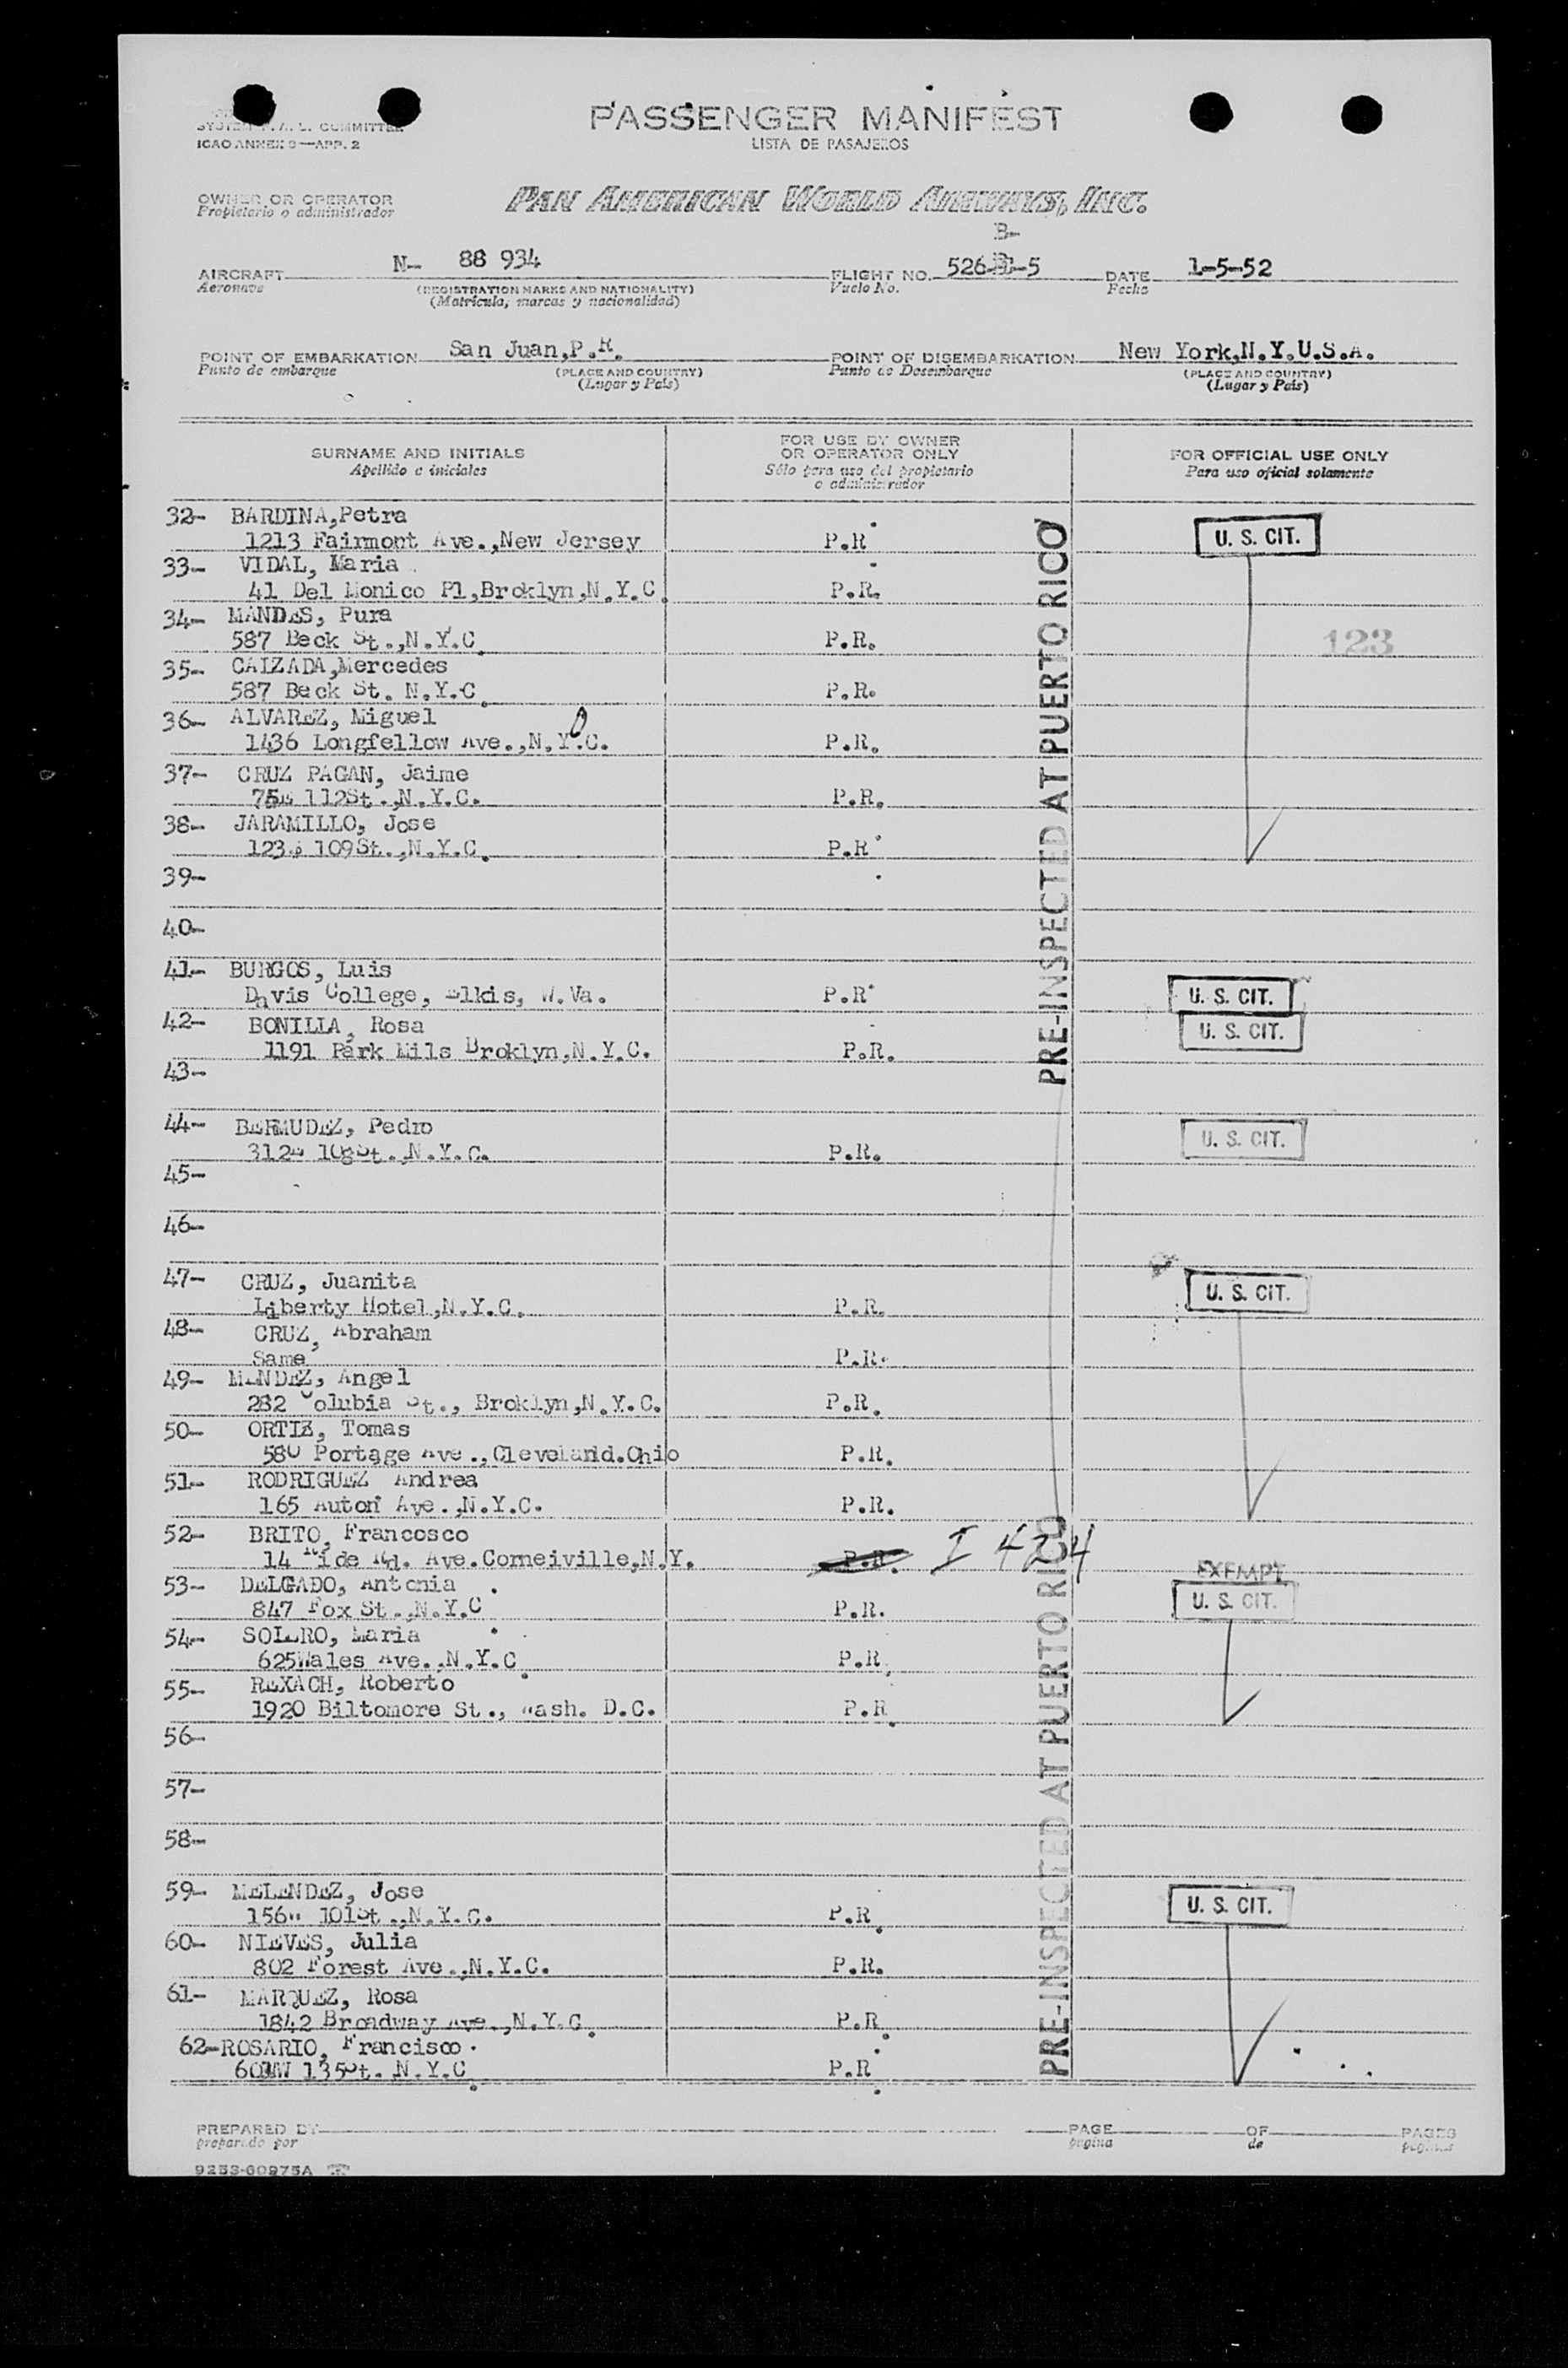 SYSTEM F.A.L. COMMITTEE
ICAO ANNEX 9—APP. 2
PASSENGER MANIFEST
LISTA DE PASAJEROS
OWNER OR OPERATOR
Propietario o administrador
PAN AMERICAN WORLD AIRWAYS, INC.
B-
AIRCRAFT N- 88 934 FLIGHT NO. 526- -5 DATE 1-5-52
Aeronave (REGISTRATION MARKS AND NATIONALITY) Vuelo No. Fecha
(Matricula, marcas y nacionalidad)
POINT OF EMBARKATION San Juan,P.R. POINT OF DISEMBARKATION New York,N.Y.U.S.A.
Punto de embarque (PLACE AND COUNTRY) Punto de Desembarque (PLACE AND COUNTRY)
(Lugar y País) (Lugar y País)
SURNAME AND INITIALS FOR USE BY OWNER OR OPERATOR ONLY FOR OFFICIAL USE ONLY
Apellido e iniciales Sólo para uso del propietario o administrador Para uso oficial solamente
32- BARDINA,Petra
1213 Fairmont Ave.,New Jersey P.R. U. S. CIT.
33- VIDAL, Maria
41 Del Monico Pl,Broklyn,N.Y.C. P.R.
34- MANDES, Pura
587 Beck St.,N.Y.C. P.R. 123
35- CALZADA,Mercedes
587 Beck St. N.Y.C. P.R.
36- ALVAREZ, Miguel
1436 Longfellow Ave.,N.Y.C. P.R.
37- CRUZ PAGAN, Jaime
75E 112St.,N.Y.C. P.R.
38- JARAMILLO, Jose
123 109St.,N.Y.C. P.R.
39-
40-
41- BURGOS, Luis
Davis College, Elkis, W.Va. P.R. U. S. CIT.
42- BONILLA, Rosa U. S. CIT.
1191 Park Mils Broklyn,N.Y.C. P.R.
PRE-INSPECTED AT PUERTO RICO
43-
44- BERMUDEZ, Pedro U. S. CIT.
312E 108St.,N.Y.C. P.R.
45-
46-
47- CRUZ, Juanita U. S. CIT.
Liberty Hotel,N.Y.C. P.R.
48- CRUZ, Abraham
Same P.R.
49- MENDEZ, Angel
282 Colubia St., Broklyn,N.Y.C. P.R.
50- ORTIZ, Tomas
580 Portage Ave.,Cleveland.Ohio P.R.
51- RODRIGUEZ Andrea
165 Auton Ave.,N.Y.C. P.R.
52- BRITO, Francosco
14 Ride Rd. Ave.Corneiville,N.Y. P.R. I 424 EXEMPT
53- DELGADO, Antonia U. S. CIT.
847 Fox St.,N.Y.C P.R.
54- SOLERO, Maria
625Wales Ave.,N.Y.C. P.R.
55- REXACH, Roberto
1920 Biltomore St., Wash. D.C. P.R.
56-
57-
58-
59- MELENDEZ, Jose U. S. CIT.
156W 101St.,N.Y.C. P.R.
60- NIEVES, Julia
802 Forest Ave.,N.Y.C. P.R.
61- MARQUEZ, Rosa
1842 Broadway Ave.,N.Y.C. P.R.
62-ROSARIO, Francisco.
W 135St. N.Y.C. P.R.
PRE-INSPECTED AT PUERTO RICO
PREPARED BY PAGE OF PAGES
preparado por página de páginas
9253-60975A